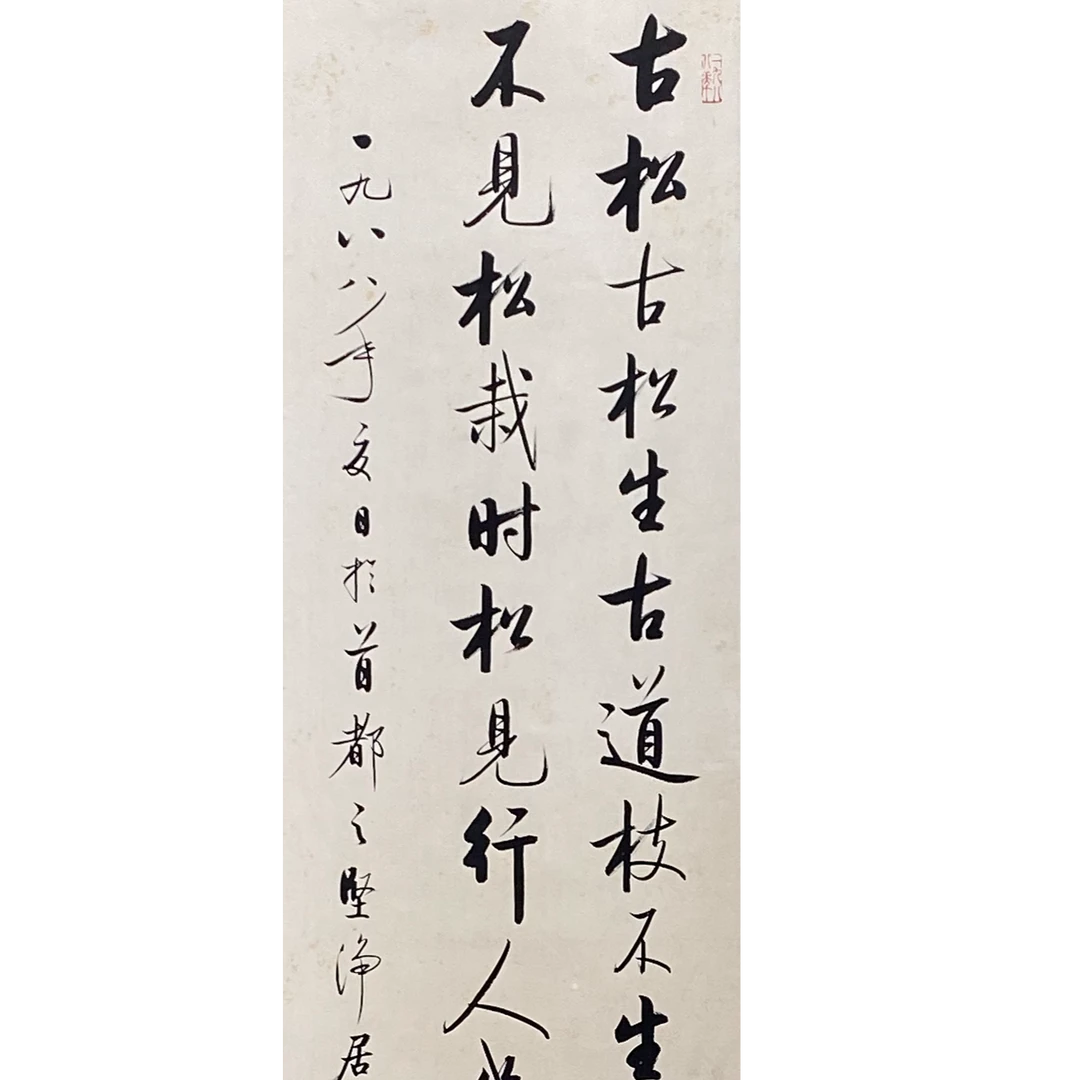 古松古松生古道枝不生
不见松栽时松见行人
一九八八年夏日於首都之坚净居